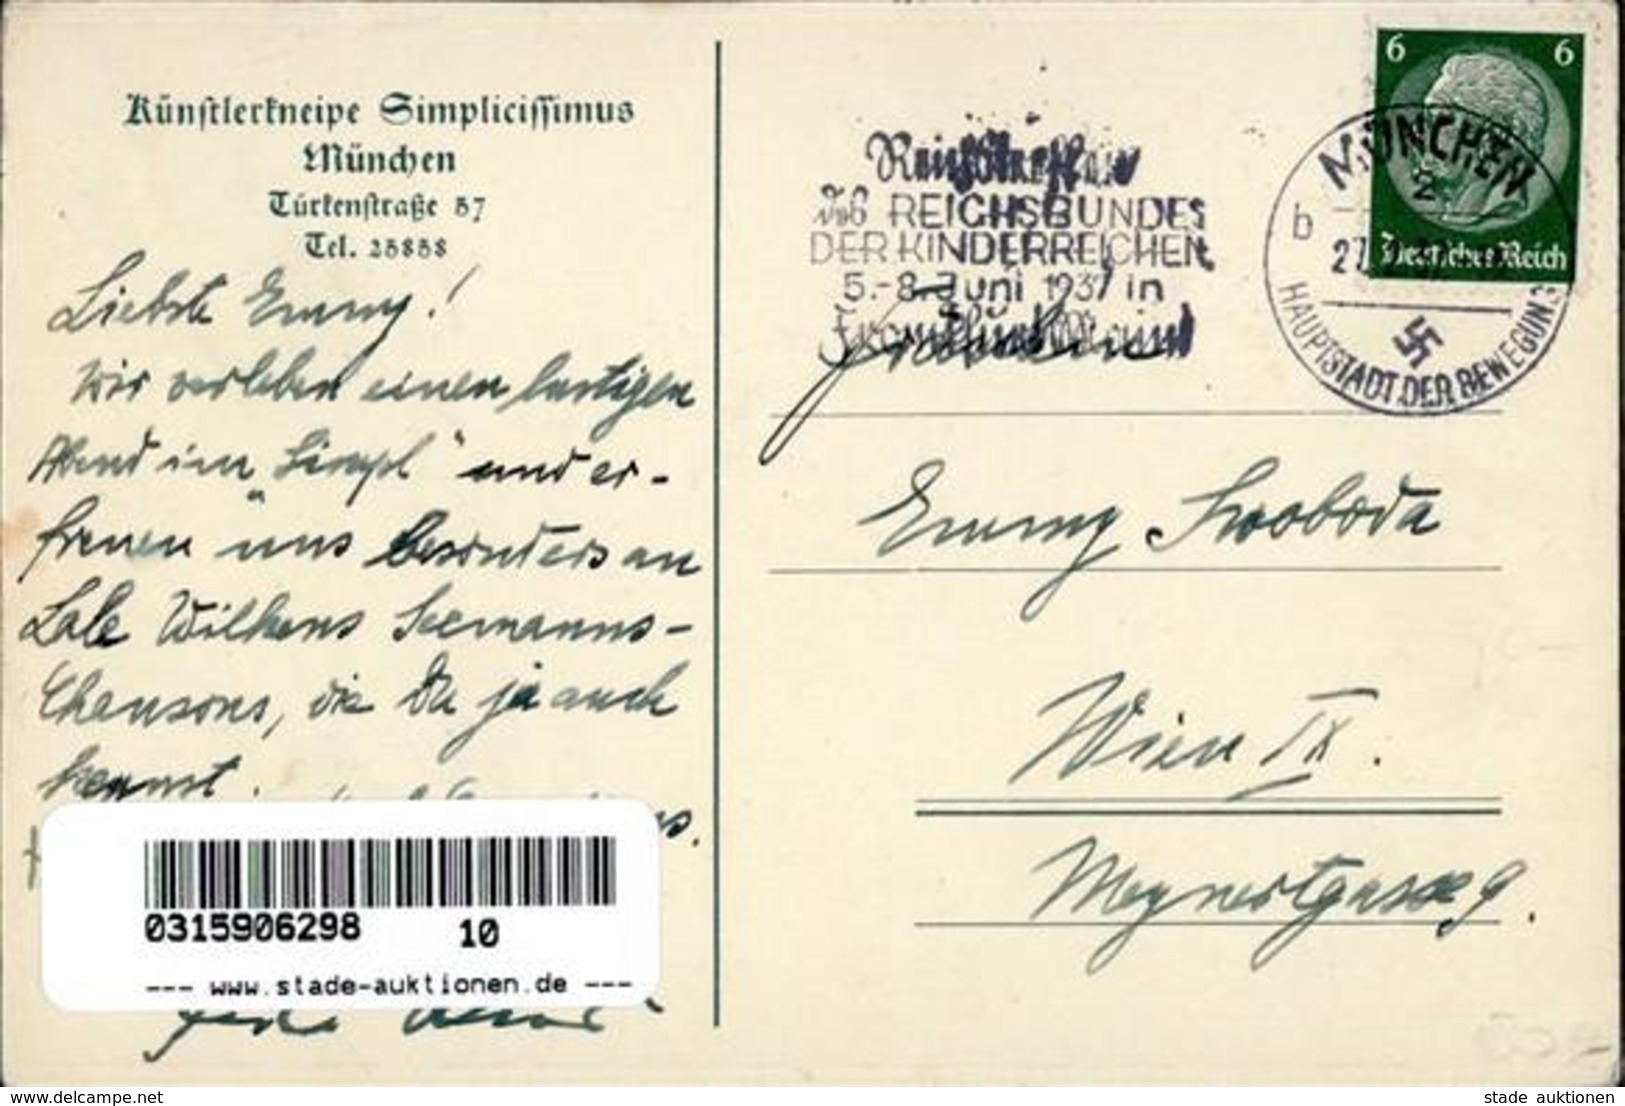 Künstlerkneipe Simplicissimus
München
Türkenstraße 57
Tel. 25858
Liebste Emmy!
Wir verleben einen lustigen
Abend im „Simpl" und er-
freuen uns besonders an
Lale Wilkens Seemanns-
Chansons, die Du ja auch
kennst.
0315906298 10
--- www.stade-auktionen.de ---
DES REICHSBUNDES
DER KINDERREICHEN
5.-8. Juni 1937 in
6 6
Deutsches Reich
MÜNCHEN
2
b
27.
HAUPTSTADT DER BEWEGUNG
Fräulein
Emmy Swoboda
Wien IX.
Meynertgasse 9.
www.picclickimg.com
stade auktionen